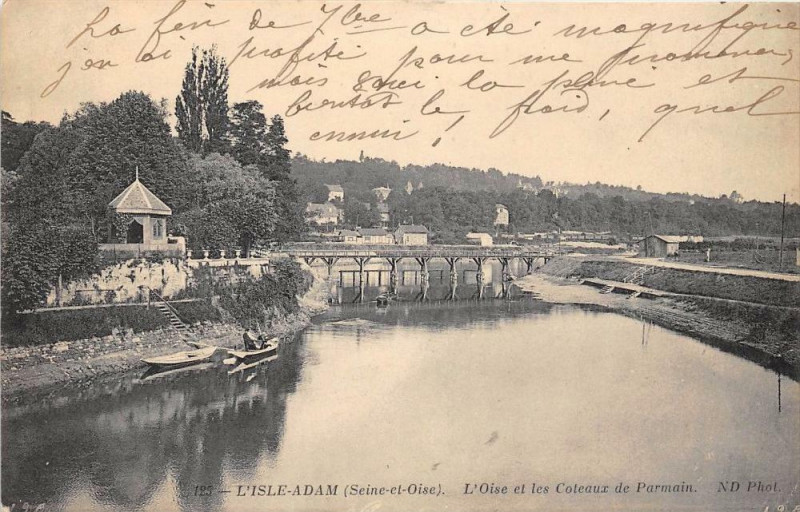 La fin de 7bre a été magnifique
j'en ai profité pour me promener,
mais gare la pluie et
bientôt le froid, quel
ennui !
123 - L'ISLE-ADAM (Seine-et-Oise). L'Oise et les Coteaux de Parmain. ND Phot.